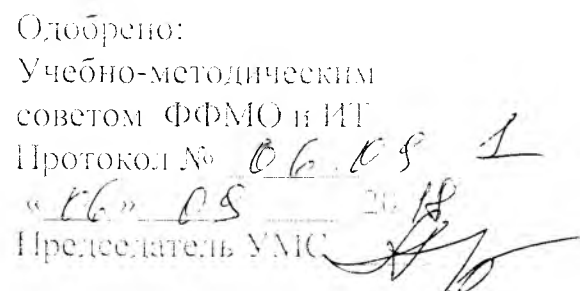 Одобрено:
Учебно-методическим
советом ФФМО и ИТ
Протокол № 06.09 1
«06» 09 2018
Председатель УМС